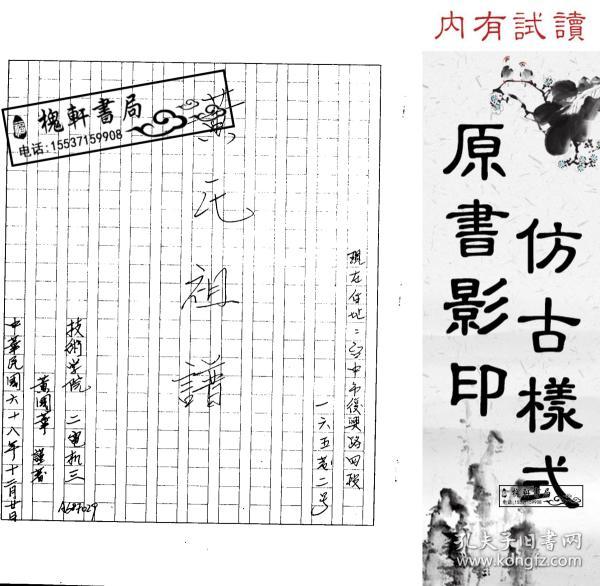 內有試讀
仿古樣式
原書影印
槐軒書局
电话:15537159908
黃氏祖譜
現在住地:台中市復興路四段
一六五巷二号
技術学院 二電机三
A687029
黃國章 謹著
中華民國六十八年十二月廿日
槐軒書局
电话:15537159908
孔夫子旧书网
www.kongfz.com